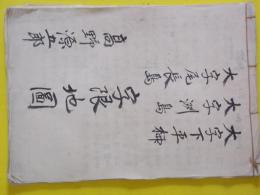 大字下平柳
大字洲島
大字尾長島
字限地圖
高野源五郎